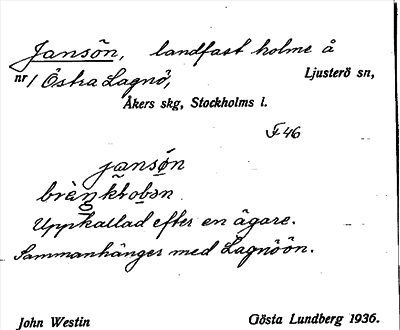 Jansön, landfast holme å
nr 1 Östra Lagnö, Ljusterö sn,
Åkers skg, Stockholms l.
F 46
jansön
Uppkallad efter en ägare.
Sammanhänger med Lagnöön.
John Westin Gösta Lundberg 1936.